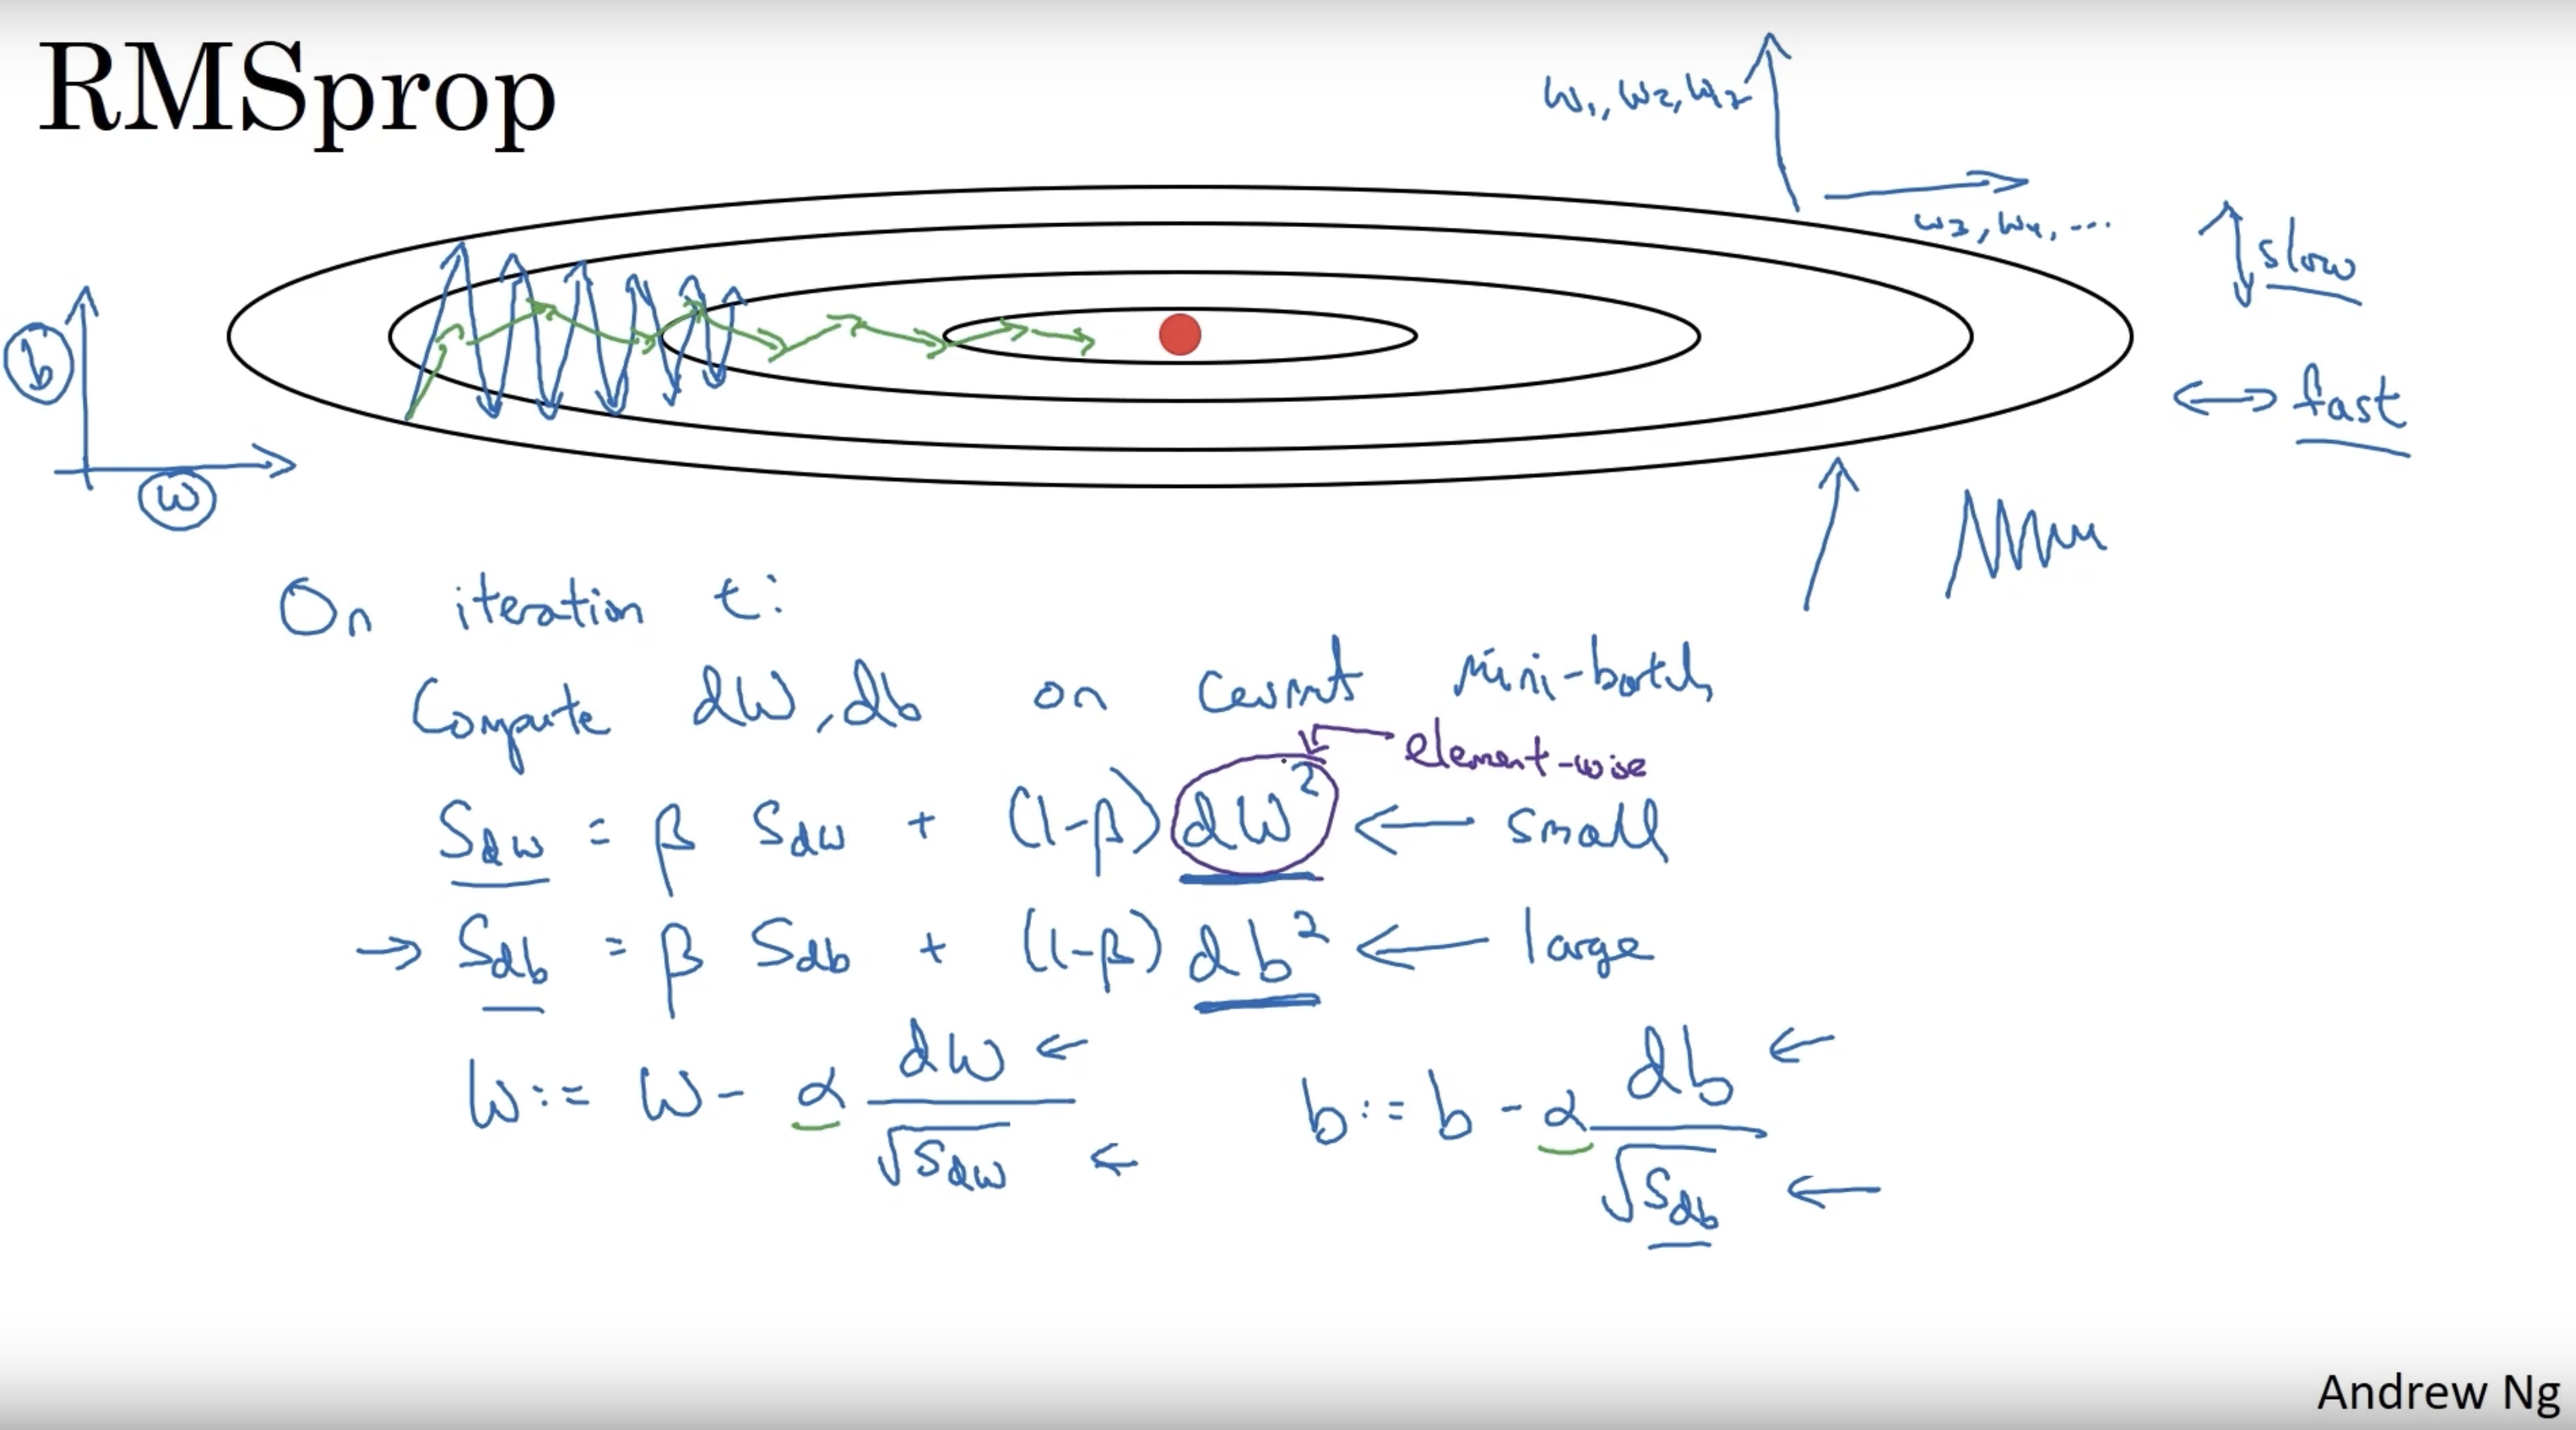 RMSprop
w₁, w₂, w₁₇
w₃, w₄, ...
slow
b
fast
w
On iteration t:
Compute dW, db on current mini-batch
element-wise
S_dw = β S_dw + (1-β) dW² ← small
→ S_db = β S_db + (1-β) db² ← large
W := W - α dW/√S_dw ← b := b - α db/√S_db ←
Andrew Ng